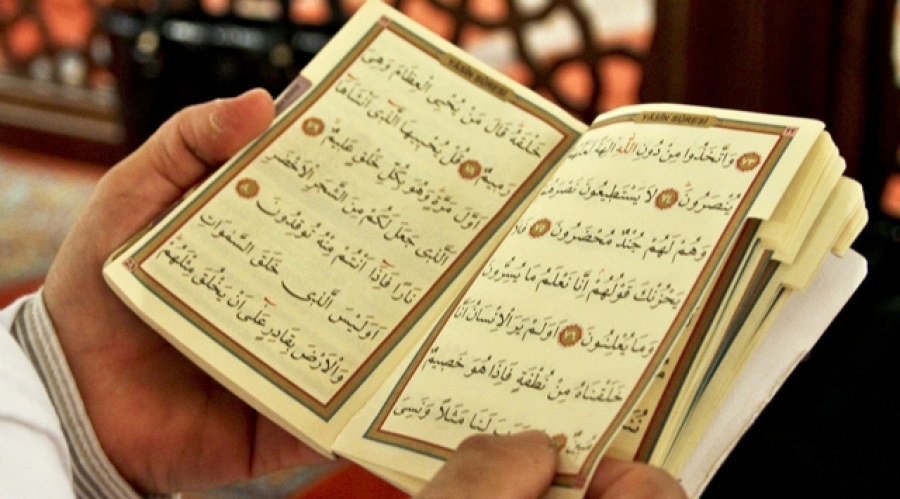 YÂSÎN SÛRESİ
٧٣ وَاتَّخَذُوا مِنْ دُونِ اللّٰهِ اٰلِهَةً لَعَلَّهُمْ
يُنْصَرُونَ ٧٤ لَا يَسْتَطِيعُونَ نَصْرَهُمْ
وَهُمْ لَهُمْ جُنْدٌ مُحْضَرُونَ ٧٥ فَلَا
يَحْزُنْكَ قَوْلُهُمْ اِنَّا نَعْلَمُ مَا يُسِرُّونَ
وَمَا يُعْلِنُونَ ٧٦ اَوَلَمْ يَرَ الْاِنْسَانُ اَنَّا
خَلَقْنَاهُ مِنْ نُطْفَةٍ فَاِذَا هُوَ خَصِيمٌ
مُبِينٌ لَنَا مَثَلًا وَنَسِيَ
YÂSÎN SÛRESİ
خَلْقَهُ قَالَ مَنْ يُحْيِي الْعِظَامَ وَهِيَ
رَمِيمٌ ٧٨ قُلْ يُحْيِيهَا الَّذِٓي اَنْشَاَهَٓا
اَوَّلَ مَرَّةٍ وَهُوَ بِكُلِّ خَلْقٍ عَلِيمٌ ٧٩
اَلَّذِي جَعَلَ لَكُمْ مِنَ الشَّجَرِ الْاَخْضَرِ
نَارًا فَاِذَٓا اَنْتُمْ مِنْهُ تُوقِدُونَ ٨٠
اَوَلَيْسَ الَّذِي خَلَقَ السَّمٰوَاتِ
وَالْاَرْضَ بِقَادِرٍ عَلٰٓى اَنْ يَخْلُقَ مِثْلَهُمْ